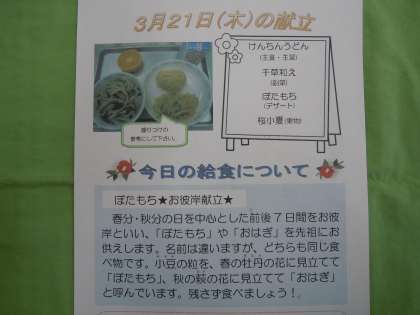 3月21日(木)の献立
けんちんうどん
(主食・主菜)
千草和え
(副菜)
ぼたもち
(デザート)
桜小夏(果物)
盛りつけの
参考にして下さい。
今日の給食について
ぼたもち★お彼岸献立★
春分・秋分の日を中心とした前後7日間をお彼
岸といい、「ぼたもち」や「おはぎ」を先祖にお
供えします。名前は違いますが、どちらも同じ食
べ物です。小豆の粒を、春の牡丹の花に見立てて
「ぼたもち」、秋の萩の花に見立てて「おはぎ」
と呼んでいます。残さず食べましょう!。